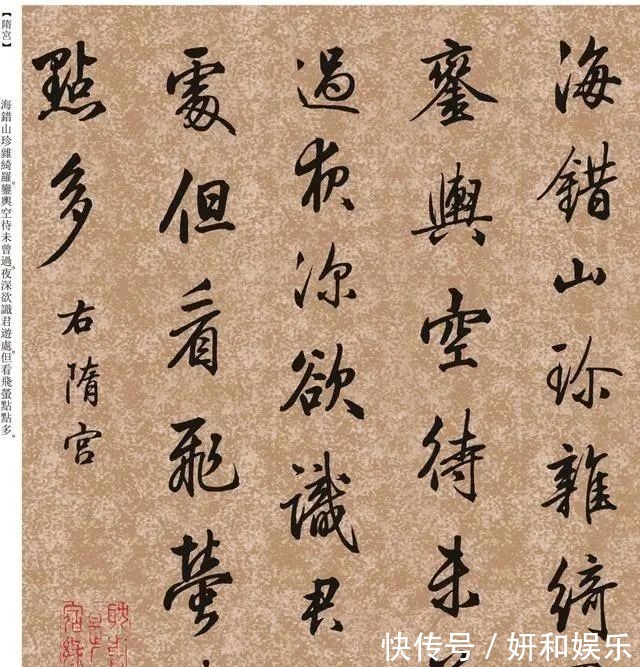 海錯山珍雜綺
鑾輿空待未
過夜深欲識君
處但看飛螢
點多
右隋宮
【隋宮】 海錯山珍雜綺羅。鑾輿空待未曾過。夜深欲識君遊處。但看飛螢點點多。
快传号 / 妍和娱乐